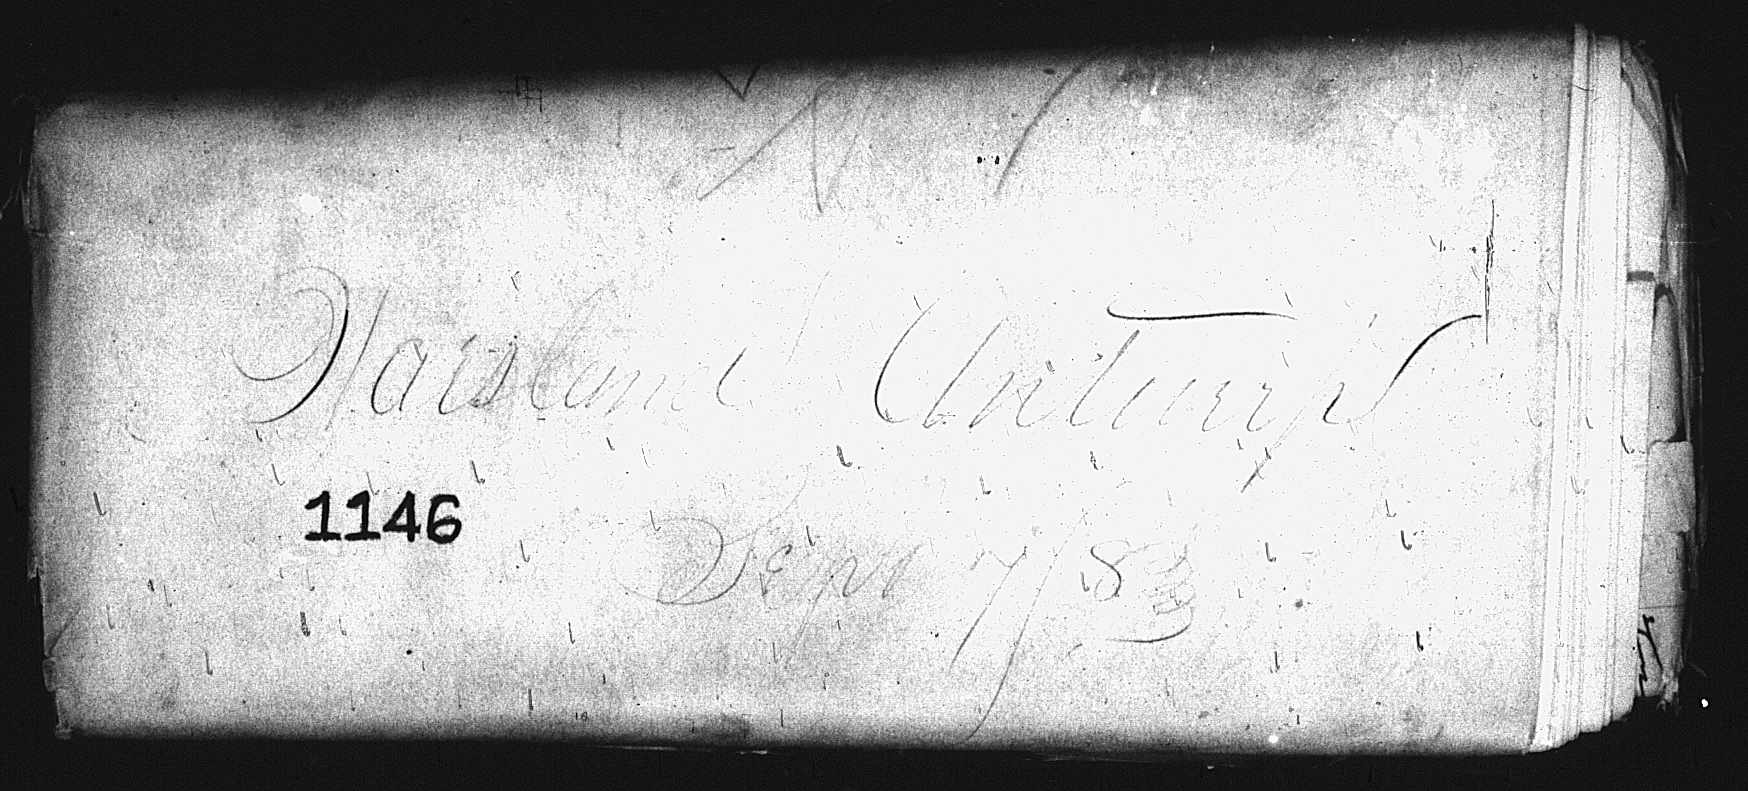 Waesland Antwerp
1146
Sept 7/83